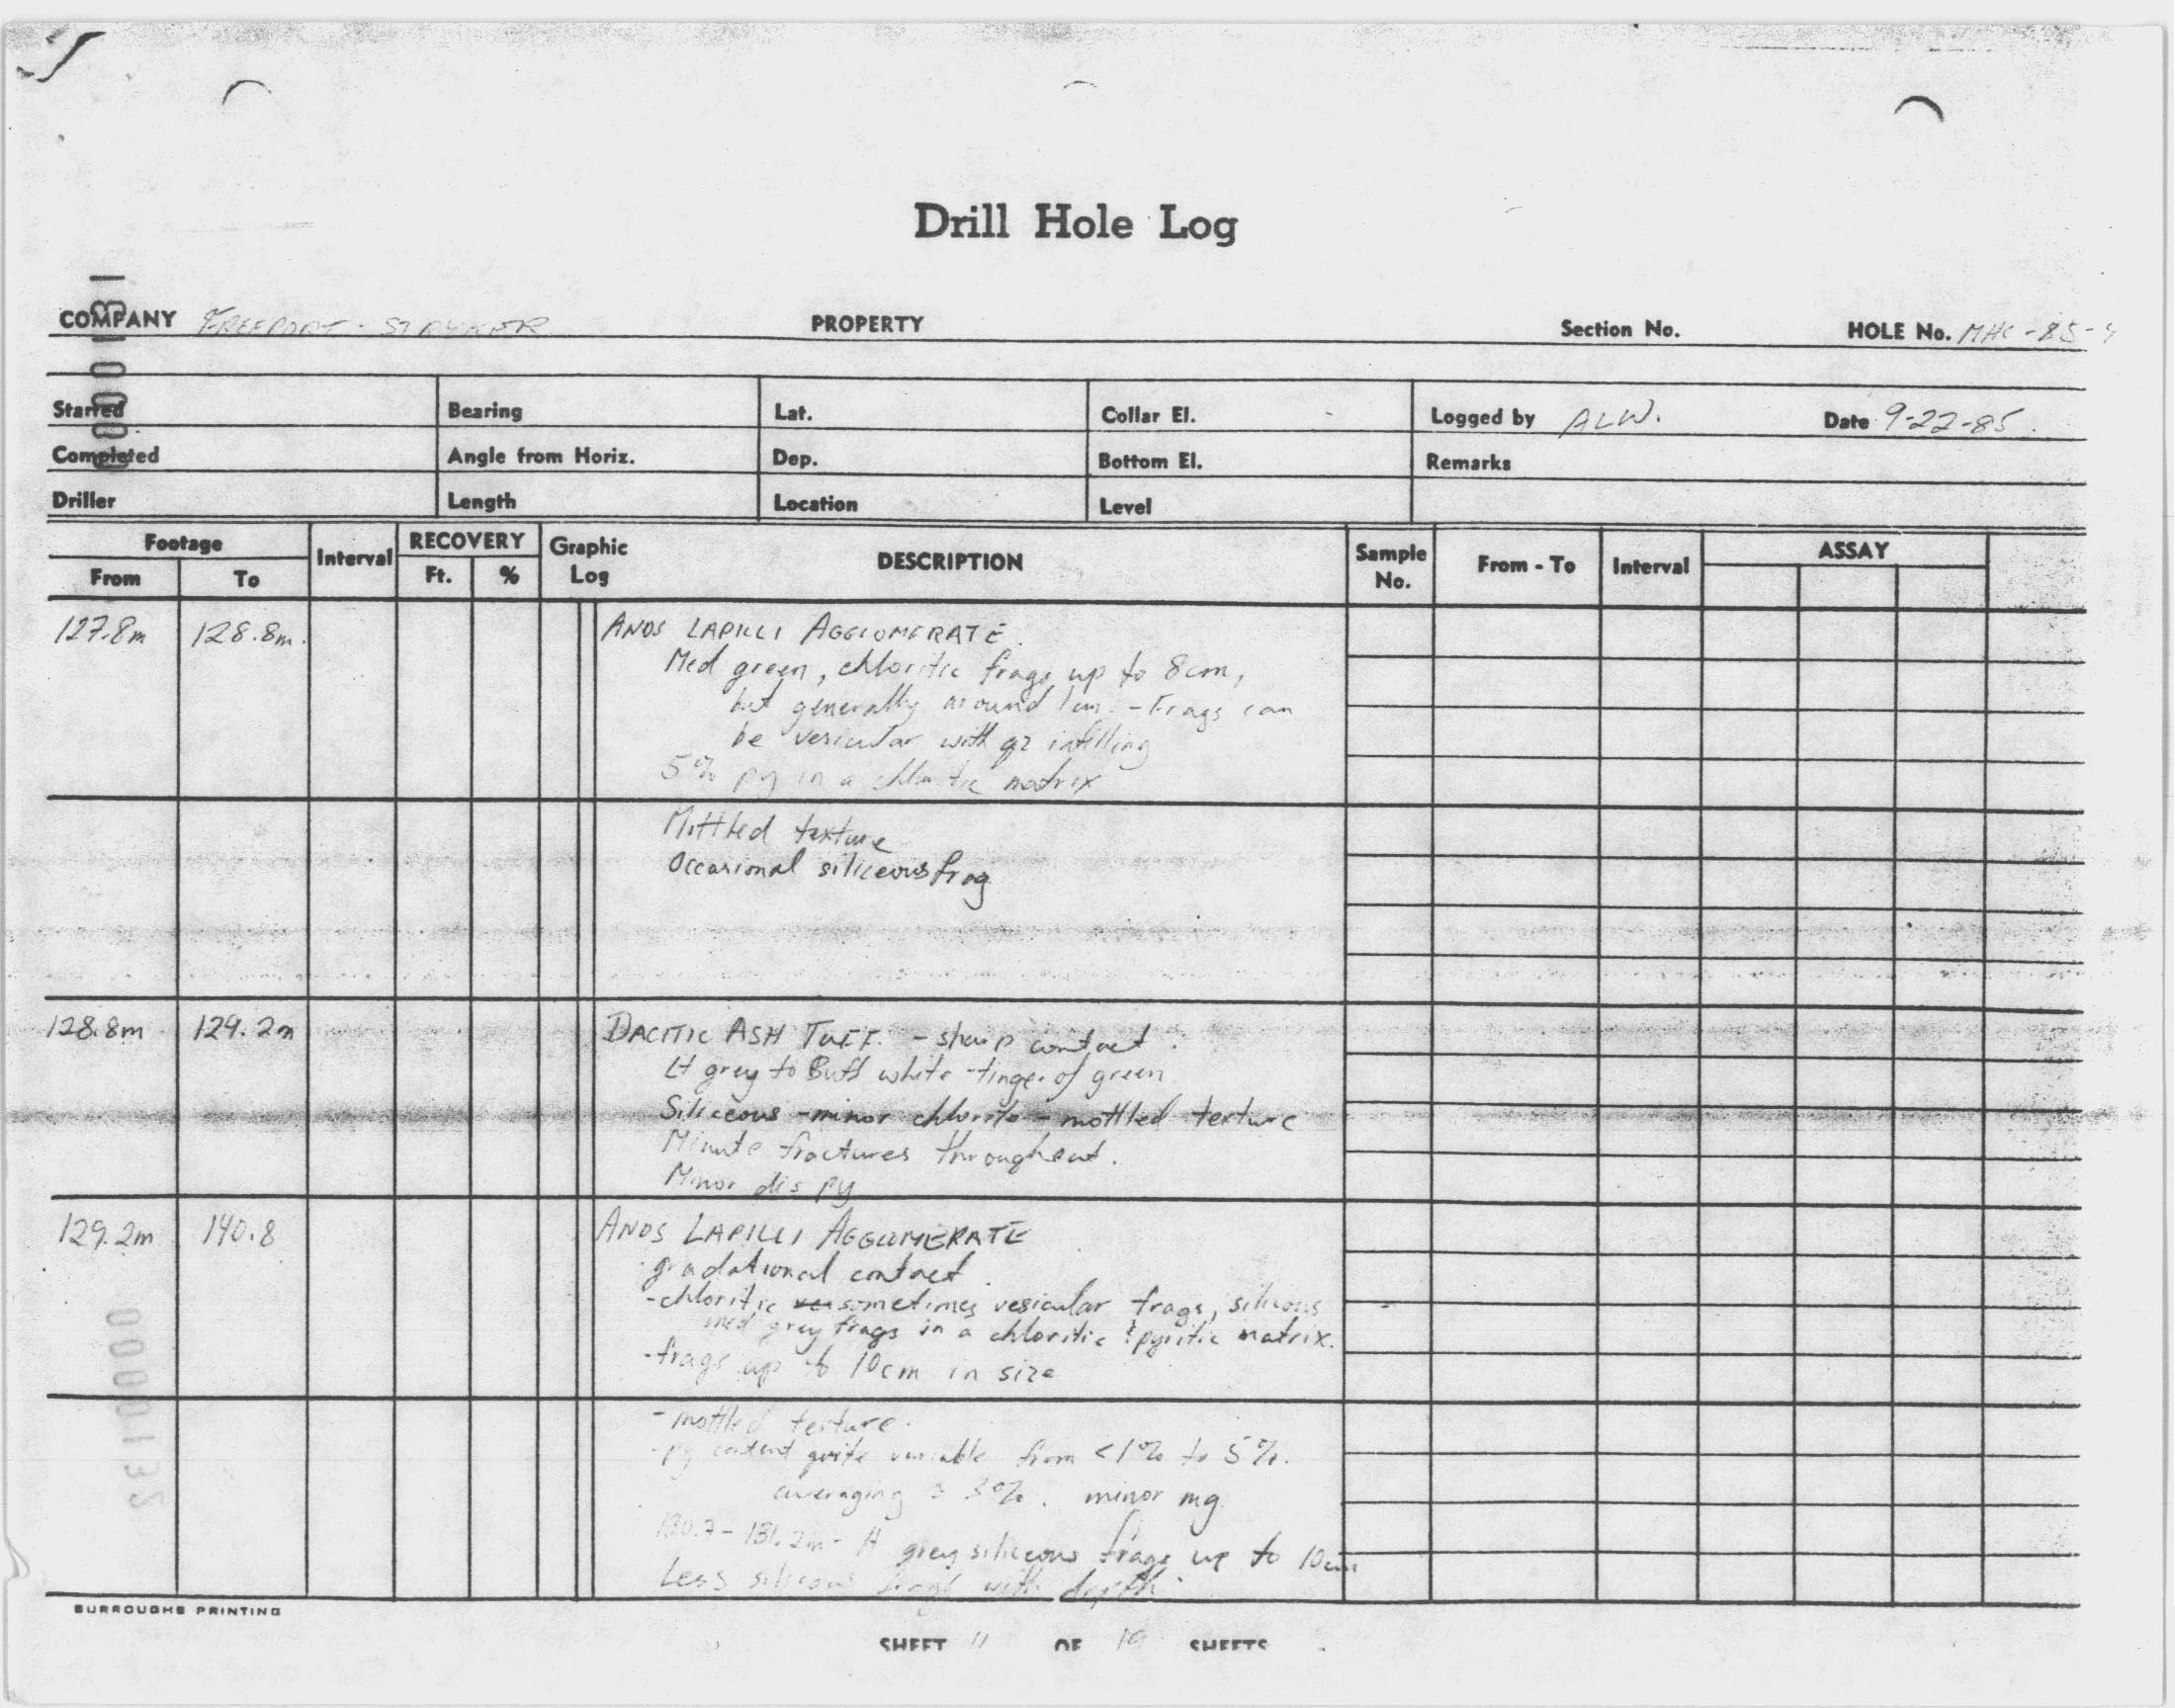 Drill Hole Log
COMPANY FREEPORT - STRYKER PROPERTY Section No. HOLE No. MHC-85-
Started Bearing Lat. Collar El. Logged by ALW. Date 9-22-85.
Completed Angle from Horiz. Dep. Bottom El. Remarks
Driller Length Location Level
Footage Interval RECOVERY Graphic Log DESCRIPTION Sample No. From - To Interval ASSAY
From To Ft. %
127.8m 128.8m. ANDS LAPILLI AGGLOMERATE.
Med green, chloritic frags up to 8cm,
but generally around 1cm. - Frags can
be vesicular with qz infilling
5% py in a chloritic matrix
Mottled texture
Occasional siliceous frag
128.8m 129.2m DACITIC ASH TUFF. - sharp contact.
Lt grey to Buff white - tinge of green
Siliceous - minor chlorite - mottled texture
Minute fractures throughout.
Minor dis py
129.2m 140.8 ANDS LAPILLI AGGLOMERATE
gradational contact.
- chloritic sometimes vesicular frags, silicous
med grey frags in a chloritic & pyritic matrix.
- frags up to 10cm in size
- mottled texture.
- py content quite variable from <1% to 5%.
averaging 3%. minor mg.
130.7 - 131.2m - lt grey siliceous frags up to 10cm
Less silicous frags with depth.
BURROUGHS PRINTING
SHEET 11 OF 19 SHEETS